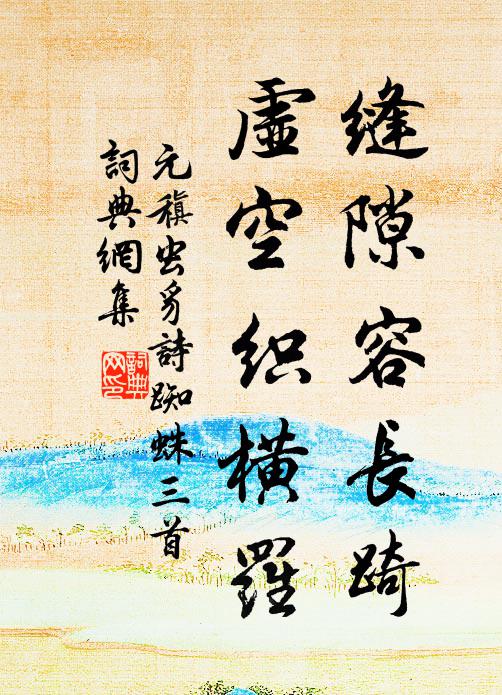 縫隙容長踦
虛空织橫羅
元稹虫豸詩蜘蛛三首
詞典網集
詞典
网印